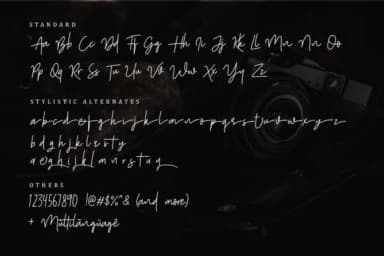 STANDARD
Aa Bb Cc Dd Ff Gg Hh Ii Jj Kk Ll Mm Nn Oo
Pp Qq Rr Ss Tt Uu Vv Ww Xx Yy Zz
STYLISTIC ALTERNATES
a b c d e f g h i j k l m n o p q r s t u v w x y z
b d g h j k l t o t y
a e g h i j k l m n r s t u y
OTHERS
1234567890 !@#$%^& (and more)
+ Multilanguage